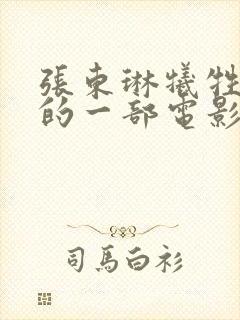 張東琳犧牲
的一部電影
司馬白衫